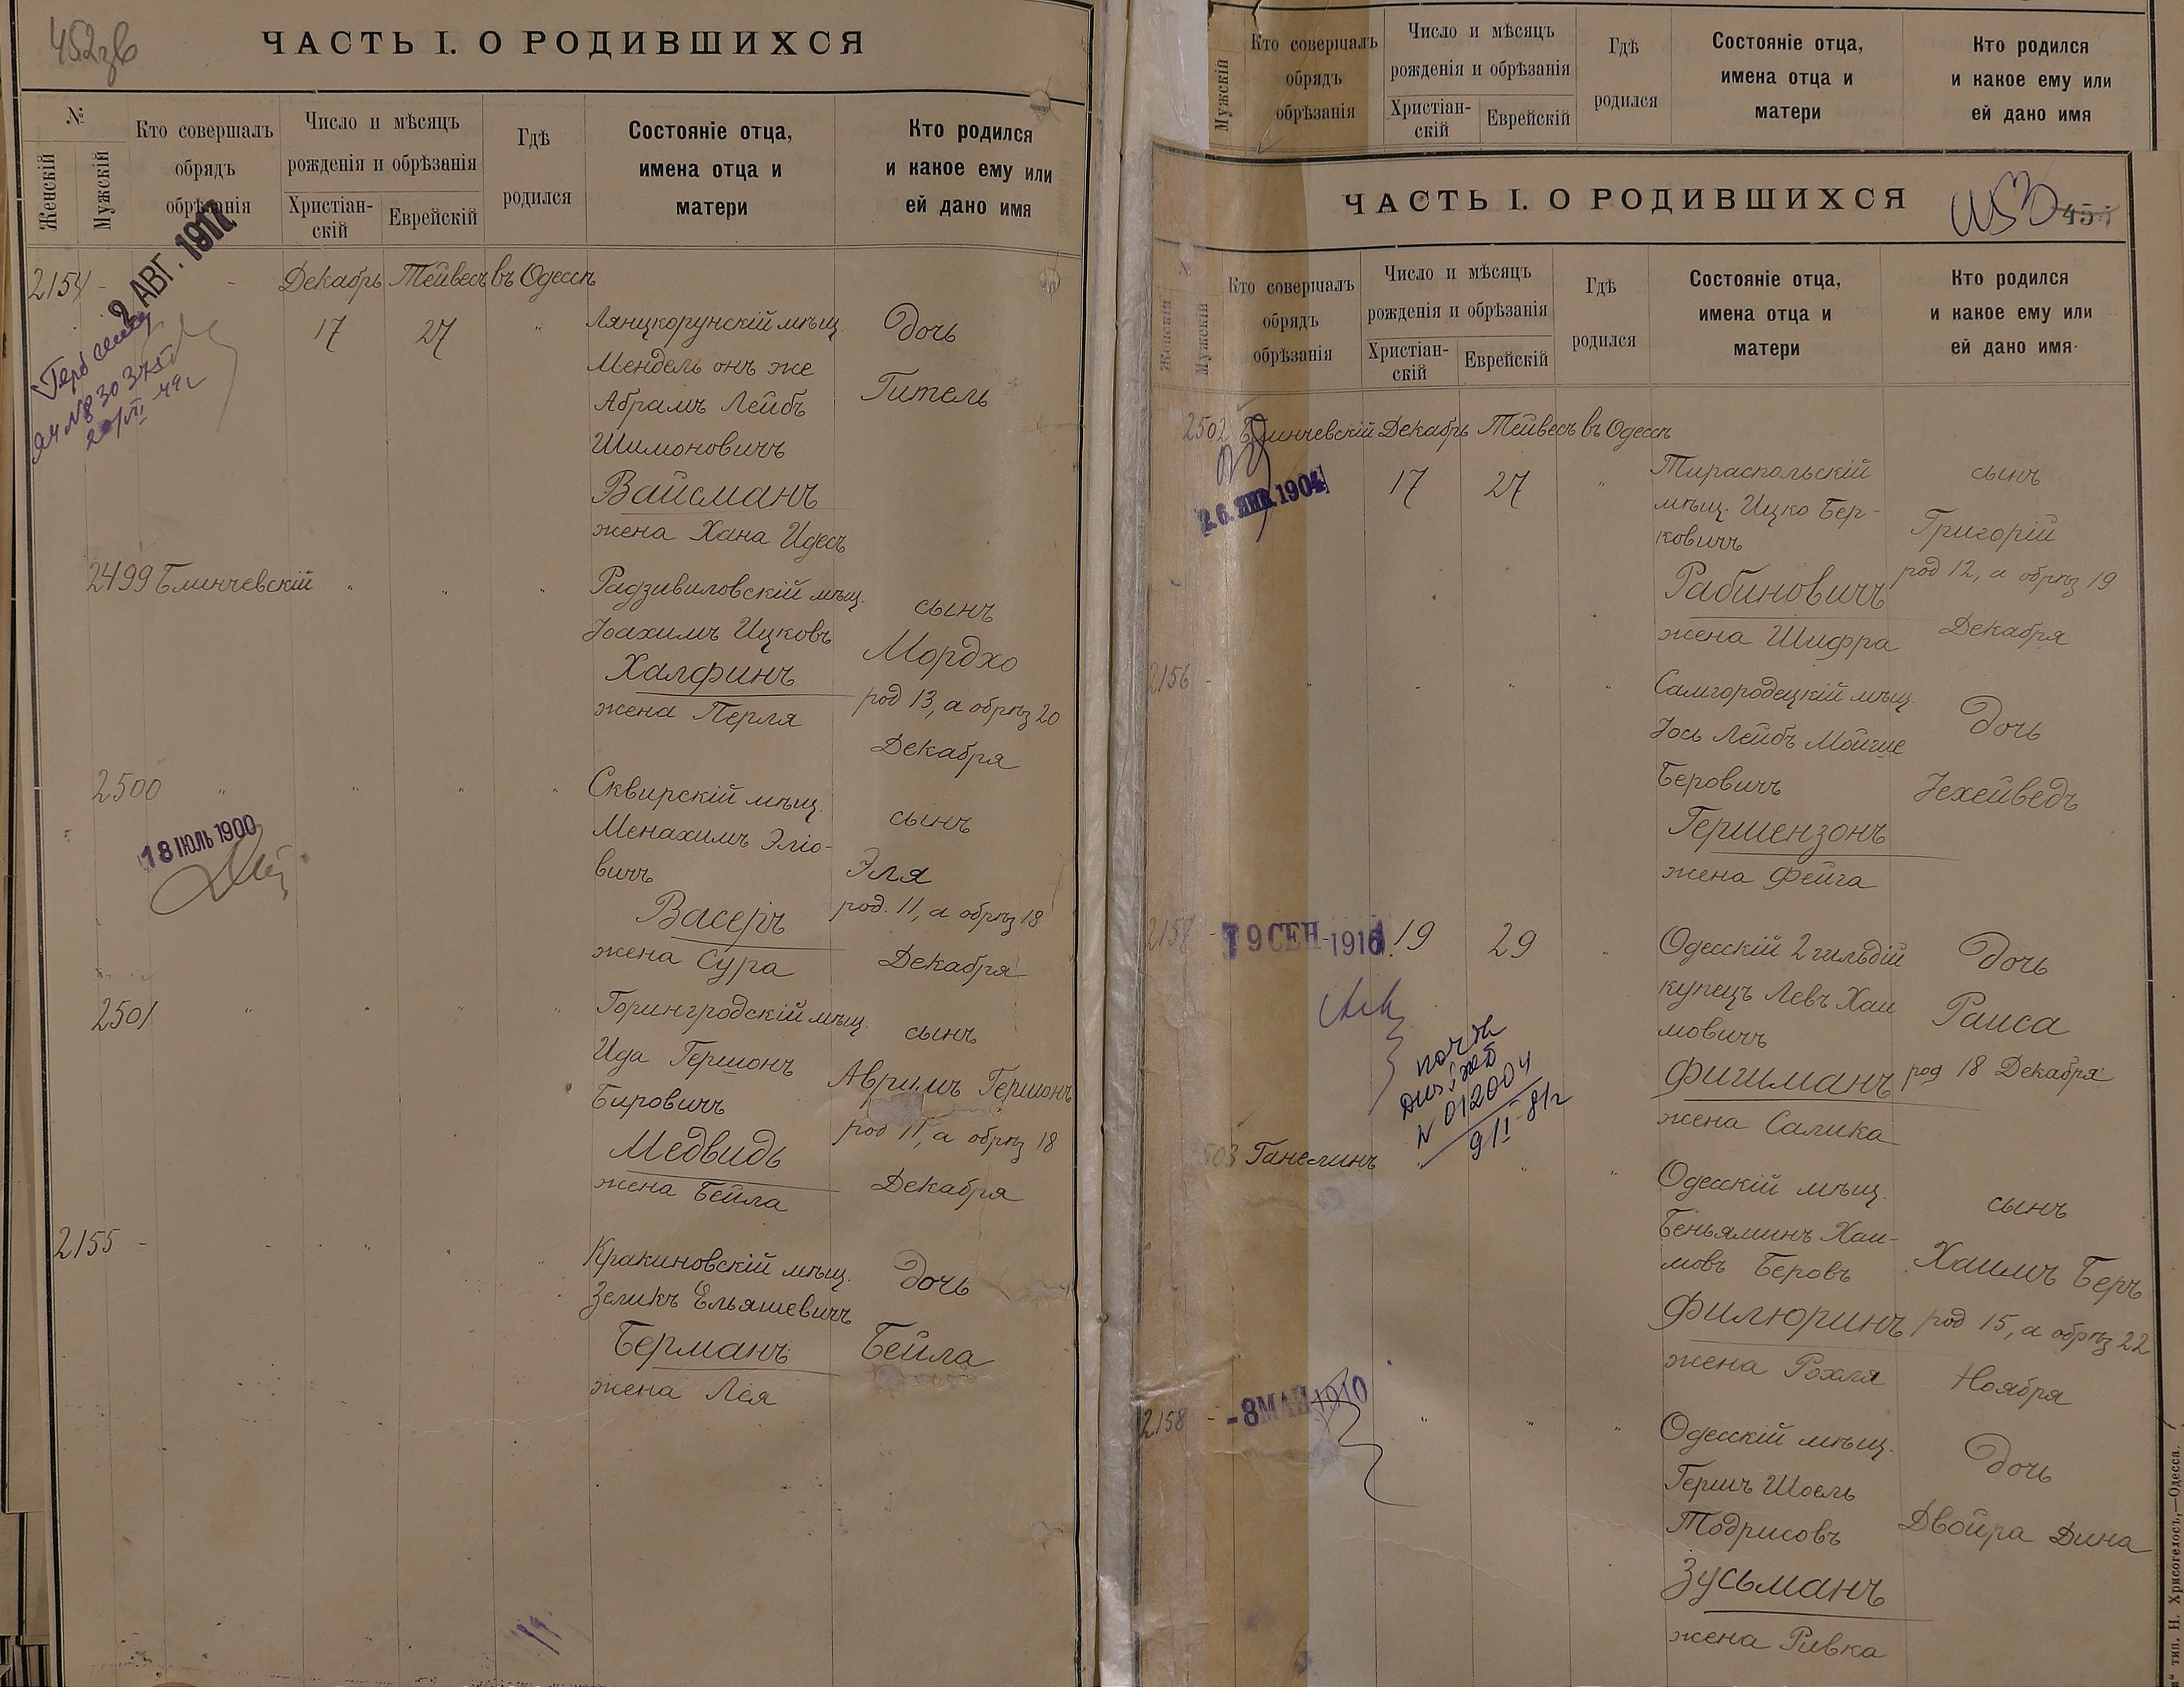 452 зв
ЧАСТЬ I. О РОДИВШИХСЯ
№
Женскій
Мужскій
Кто совершалъ
обрядъ
обрѣзанія
Число и мѣсяцъ
рожденія и обрѣзанія
Христіан-
скій
Еврейскій
Гдѣ
родился
Состояніе отца,
имена отца и
матери
Кто родился
и какое ему или
ей дано имя
2 АВГ. 1917
2154 - - Декабрь Тейвесъ въ Одессѣ
17 27 " Лянцкорунскій мѣщ. Дочь
Мендель онъ же
Абрамъ Лейбъ Гитель
Шимоновичъ
Вайсманъ
жена Хана Идесъ
2499 Блинчевскій " " " Радзивиловскій мѣщ. сынъ
Іоахимъ Ицковъ Мордхо
Халфинъ род 13, а обрѣз 20
жена Перля Декабря
2500 " " " " Сквирскій мѣщ. сынъ
18 ІЮЛЬ 1900
Менахимъ Эліо-
вичъ Эля
Васеръ род. 11, а обрѣз 18
жена Сура Декабря
2501 " " " " Горингродскій мѣщ. сынъ
Ида Гершонъ Аврумъ Гершонъ
Бировичъ род 11, а обрѣз 18
Медвидь Декабря
жена Бейла
2155 - - " " " Кракиновскій мѣщ. Дочь
Зеликъ Ельяшевичъ
Берманъ Бейла
жена Лея
Мужскій
Кто совершалъ
обрядъ
обрѣзанія
Число и мѣсяцъ
рожденія и обрѣзанія
Христіан-
скій
Еврейскій
Гдѣ
родился
Состояніе отца,
имена отца и
матери
Кто родился
и какое ему или
ей дано имя
ЧАСТЬ I. О РОДИВШИХСЯ
453
№
Женскій
Мужскій
Кто совершалъ
обрядъ
обрѣзанія
Число и мѣсяцъ
рожденія и обрѣзанія
Христіан-
скій
Еврейскій
Гдѣ
родился
Состояніе отца,
имена отца и
матери
Кто родился
и какое ему или
ей дано имя
2502 Блинчевскій Декабрь Тейвесъ въ Одессѣ
26. ЯНВ. 1904
17 27 " Тираспольскій сынъ
мѣщ. Ицко Бер-
ковичъ Григорій
Рабиновичъ род 12, а обрѣз 19
жена Шифра Декабря
2156 - " " " " Самгородецкій мѣщ. Дочь
Іось Лейбъ Мойше
Беровичъ Іехейведъ
Гершензонъ
жена Фейга
2157 - 19 СЕН 1916
19 29 " Одесскій 2 гильдій Дочь
купецъ Левъ Хаи
мовичъ Раиса
Фишманъ род 18 Декабря
жена Салика
N 012004
9/II-81г
503 Ганелинъ " " " Одесскій мѣщ. сынъ
Беньяминъ Хаи-
мовъ Беровъ Хаимъ Беръ
Филюринъ род 15, а обрѣз 22
жена Рохля Ноября
2158 - -8 МАЙ 1910
" " " Одесскій мѣщ. Дочь
Гершъ Шоель
Тодрисовъ Двойра Дина
Зусьманъ
жена Ривка
тип. Н. Хрисогелосъ,—Одесса.